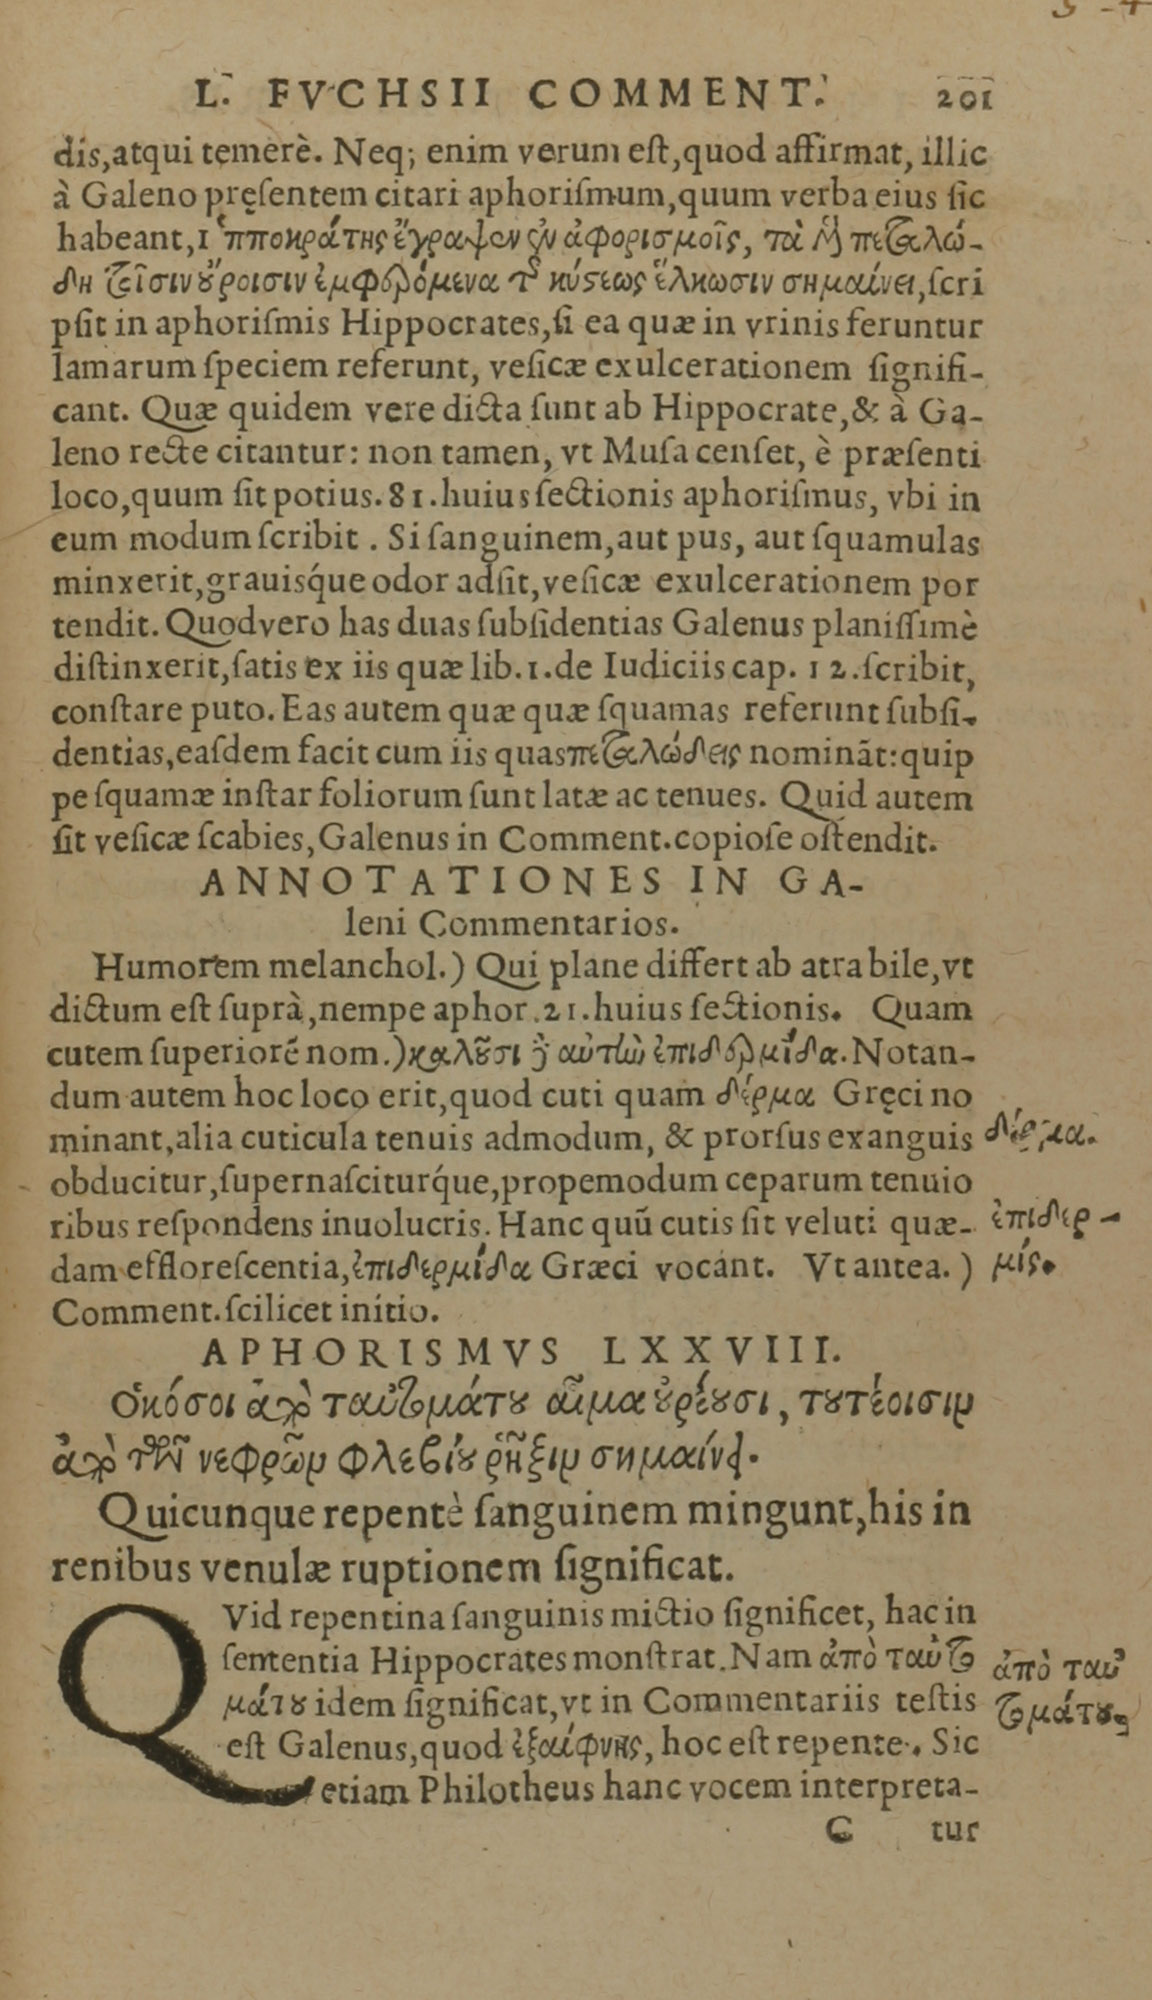 L. FVCHSII COMMENT. 201
dis, atqui temerè. Neq; enim verum eſt, quod affirmat, illic
à Galeno pręſentem citari aphoriſmum, quum verba eius ſic
habeant, Ἱπποκράτης ἔγραψεν ἐν ἀφορισμοῖς, τὰ δὲ πεταλώ-
δη τοῖσιν οὔροισιν ἐμφερόμενα τῆς κύστεως ἕλκωσιν σημαίνει, ſcri
pſit in aphoriſmis Hippocrates, ſi ea quæ in vrinis feruntur
lamarum ſpeciem referunt, veſicæ exulcerationem ſignifi-
cant. Quæ quidem vere dicta ſunt ab Hippocrate, & à Ga-
leno recte citantur: non tamen, vt Muſa cenſet, è præſenti
loco, quum ſit potius. 81. huius ſectionis aphoriſmus, vbi in
eum modum ſcribit. Si ſanguinem, aut pus, aut ſquamulas
minxerit, grauisq́ue odor adſit, veſicæ exulcerationem por
tendit. Quod vero has duas ſubſidentias Galenus planiſſimè
diſtinxerit, ſatis ex iis quæ lib. 1. de Iudiciis cap. 12. ſcribit,
conſtare puto. Eas autem quæ quæ ſquamas referunt ſubſi-
dentias, eaſdem facit cum iis quas πεταλώδεις nominãt: quip
pe ſquamæ inſtar foliorum ſunt latæ ac tenues. Quid autem
ſit veſicæ ſcabies, Galenus in Comment. copioſe oſtendit.
ANNOTATIONES IN GA-
leni Commentarios.
Humorem melanchol.) Qui plane differt ab atra bile, vt
dictum eſt ſuprà, nempe aphor. 21. huius ſectionis. Quam
cutem ſuperiorẽ nom.) καλοῦσι δ᾽ αὐτὴν ἐπιδερμίδα. Notan-
dum autem hoc loco erit, quod cuti quam δέρμα Gręci no
minant, alia cuticula tenuis admodum, & prorſus exanguis
δέρμα.
obducitur, ſupernaſciturq́ue, propemodum ceparum tenuio
ribus reſpondens inuolucris. Hanc quũ cutis ſit veluti quæ-
ἐπιδερ-
dam effloreſcentia, ἐπιδερμίδα Græci vocant. Vt antea.)
μίς.
Comment. ſcilicet initio.
APHORISMVS LXXVIII.
Ὁκόσοι ἀπὸ ταὐτομάτου αἷμα οὐρέουσι, τουτέοισιν
ἀπὸ τῶν νεφρῶν φλεβίου ῥῆξιν σημαίνει.
Quicunque repentè ſanguinem mingunt, his in
renibus venulæ ruptionem ſignificat.
QVid repentina ſanguinis mictio ſignificet, hac in
ſententia Hippocrates monſtrat. Nam ἀπὸ ταὐτο
ἀπὸ ταὐ
μάτου idem ſignificat, vt in Commentariis teſtis
τομάτου.
eſt Galenus, quod ἐξαίφνης, hoc eſt repente. Sic
etiam Philotheus hanc vocem interpreta-
C tur